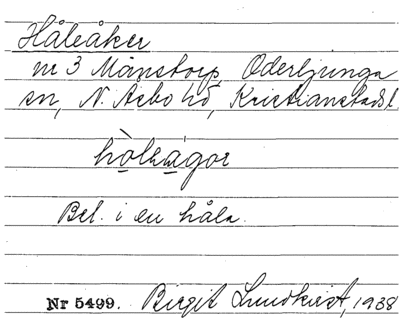 Håleåker
nr 3 Månstorp, Oderljunga
sn, N. Åsbo hd, Kristianstads l.
Bel. i en håla.
Nr 5499. Birgit Lundkvist, 1938